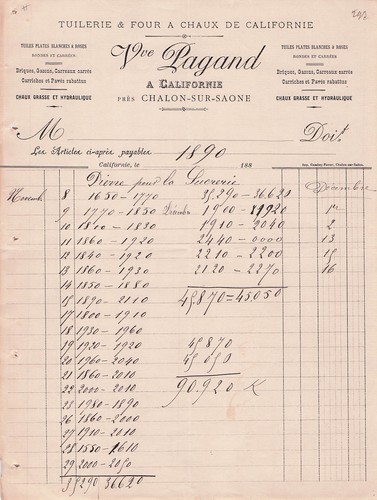 TUILERIE & FOUR A CHAUX DE CALIFORNIE
TUILES PLATES BLANCHES & ROSES
Briques, Gazons, Carreaux carrés
Carriches et Pavés rabattus
CHAUX GRASSE ET HYDRAULIQUE
Vve Pagand
A CALIFORNIE
PRÈS CHALON-SUR-SAONE
TUILES PLATES BLANCHES & ROSES
Briques, Gazons, Carreaux carrés
Carriches et Pavés rabattus
CHAUX GRASSE ET HYDRAULIQUE
M Doit
Les Articles ci-après payables 1890
Californie, le 188
Pierre pour la Sucrerie
Novemb 8 1650-1770 35.290-36.620 Décembre
9 1770-1850 Décembre 1900-1920 1er
10 1810-1830 1910-2040 2
11 1860-1920 2440-0000 13
12 1840-1920 2210-2200 15
13 1860-1930 2120-2270 16
14 1850-1880
15 1890-2110 45.870=45.050
17 1800-1910
18 1930-1960
19 1920-1920 45.870
20 1960-2040 45.050
21 1860-2010
22 2000-2010 90.920 K
23 1980-1890
26 1860-2000
27 1910-2010
28 1550-1610
29 2000-2050
35290 36620